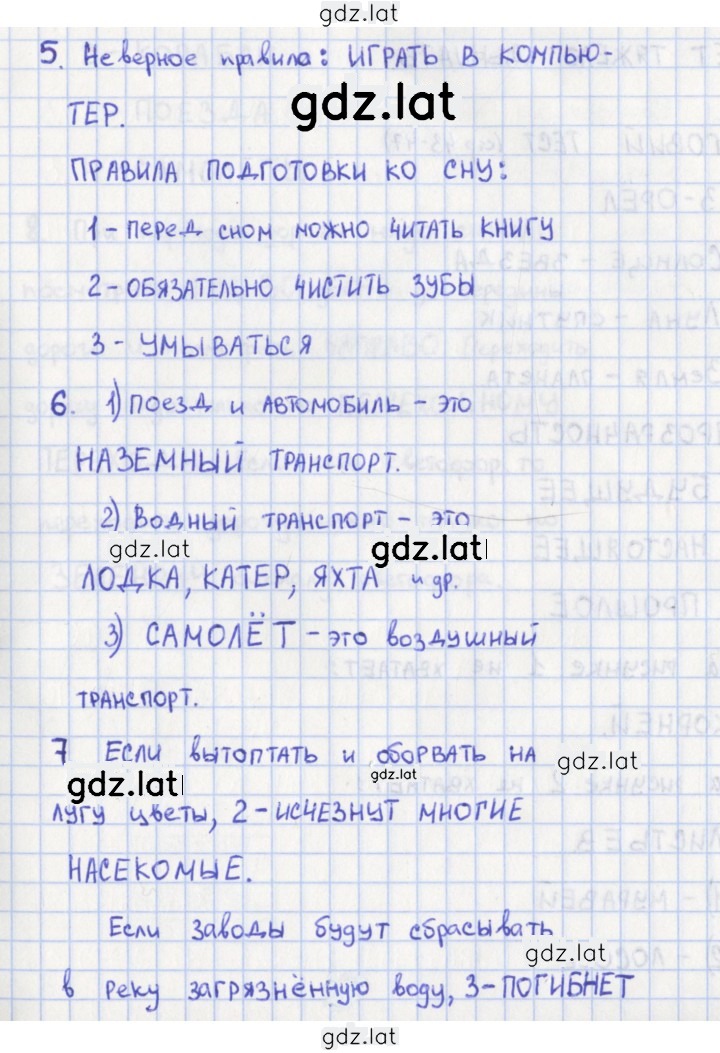 gdz.lat
5. Неверное правила: ИГРАТЬ В КОМПЬЮ-
gdz.lat
ТЕР.
ПРАВИЛА ПОДГОТОВКИ КО СНУ:
1 - перед сном можно читать книгу
2 - ОБЯЗАТЕЛЬНО ЧИСТИТЬ ЗУБЫ
3 - УМЫВАТЬСЯ
6. 1) Поезд и автомобиль - это
НАЗЕМНЫЙ ТРАНСПОРТ.
2) Водный транспорт - это
gdz.lat gdz.lat
ЛОДКА, КАТЕР, ЯХТА и др.
3) САМОЛЁТ - это воздушный
транспорт.
7 Если вытоптать и оборвать на
gdz.lat gdz.lat gdz.lat
лугу цветы, 2 - ИСЧЕЗНУТ МНОГИЕ
НАСЕКОМЫЕ.
Если заводы будут сбрасывать
gdz.lat
в реку загрязнённую воду, 3 - ПОГИБНЕТ
gdz.lat